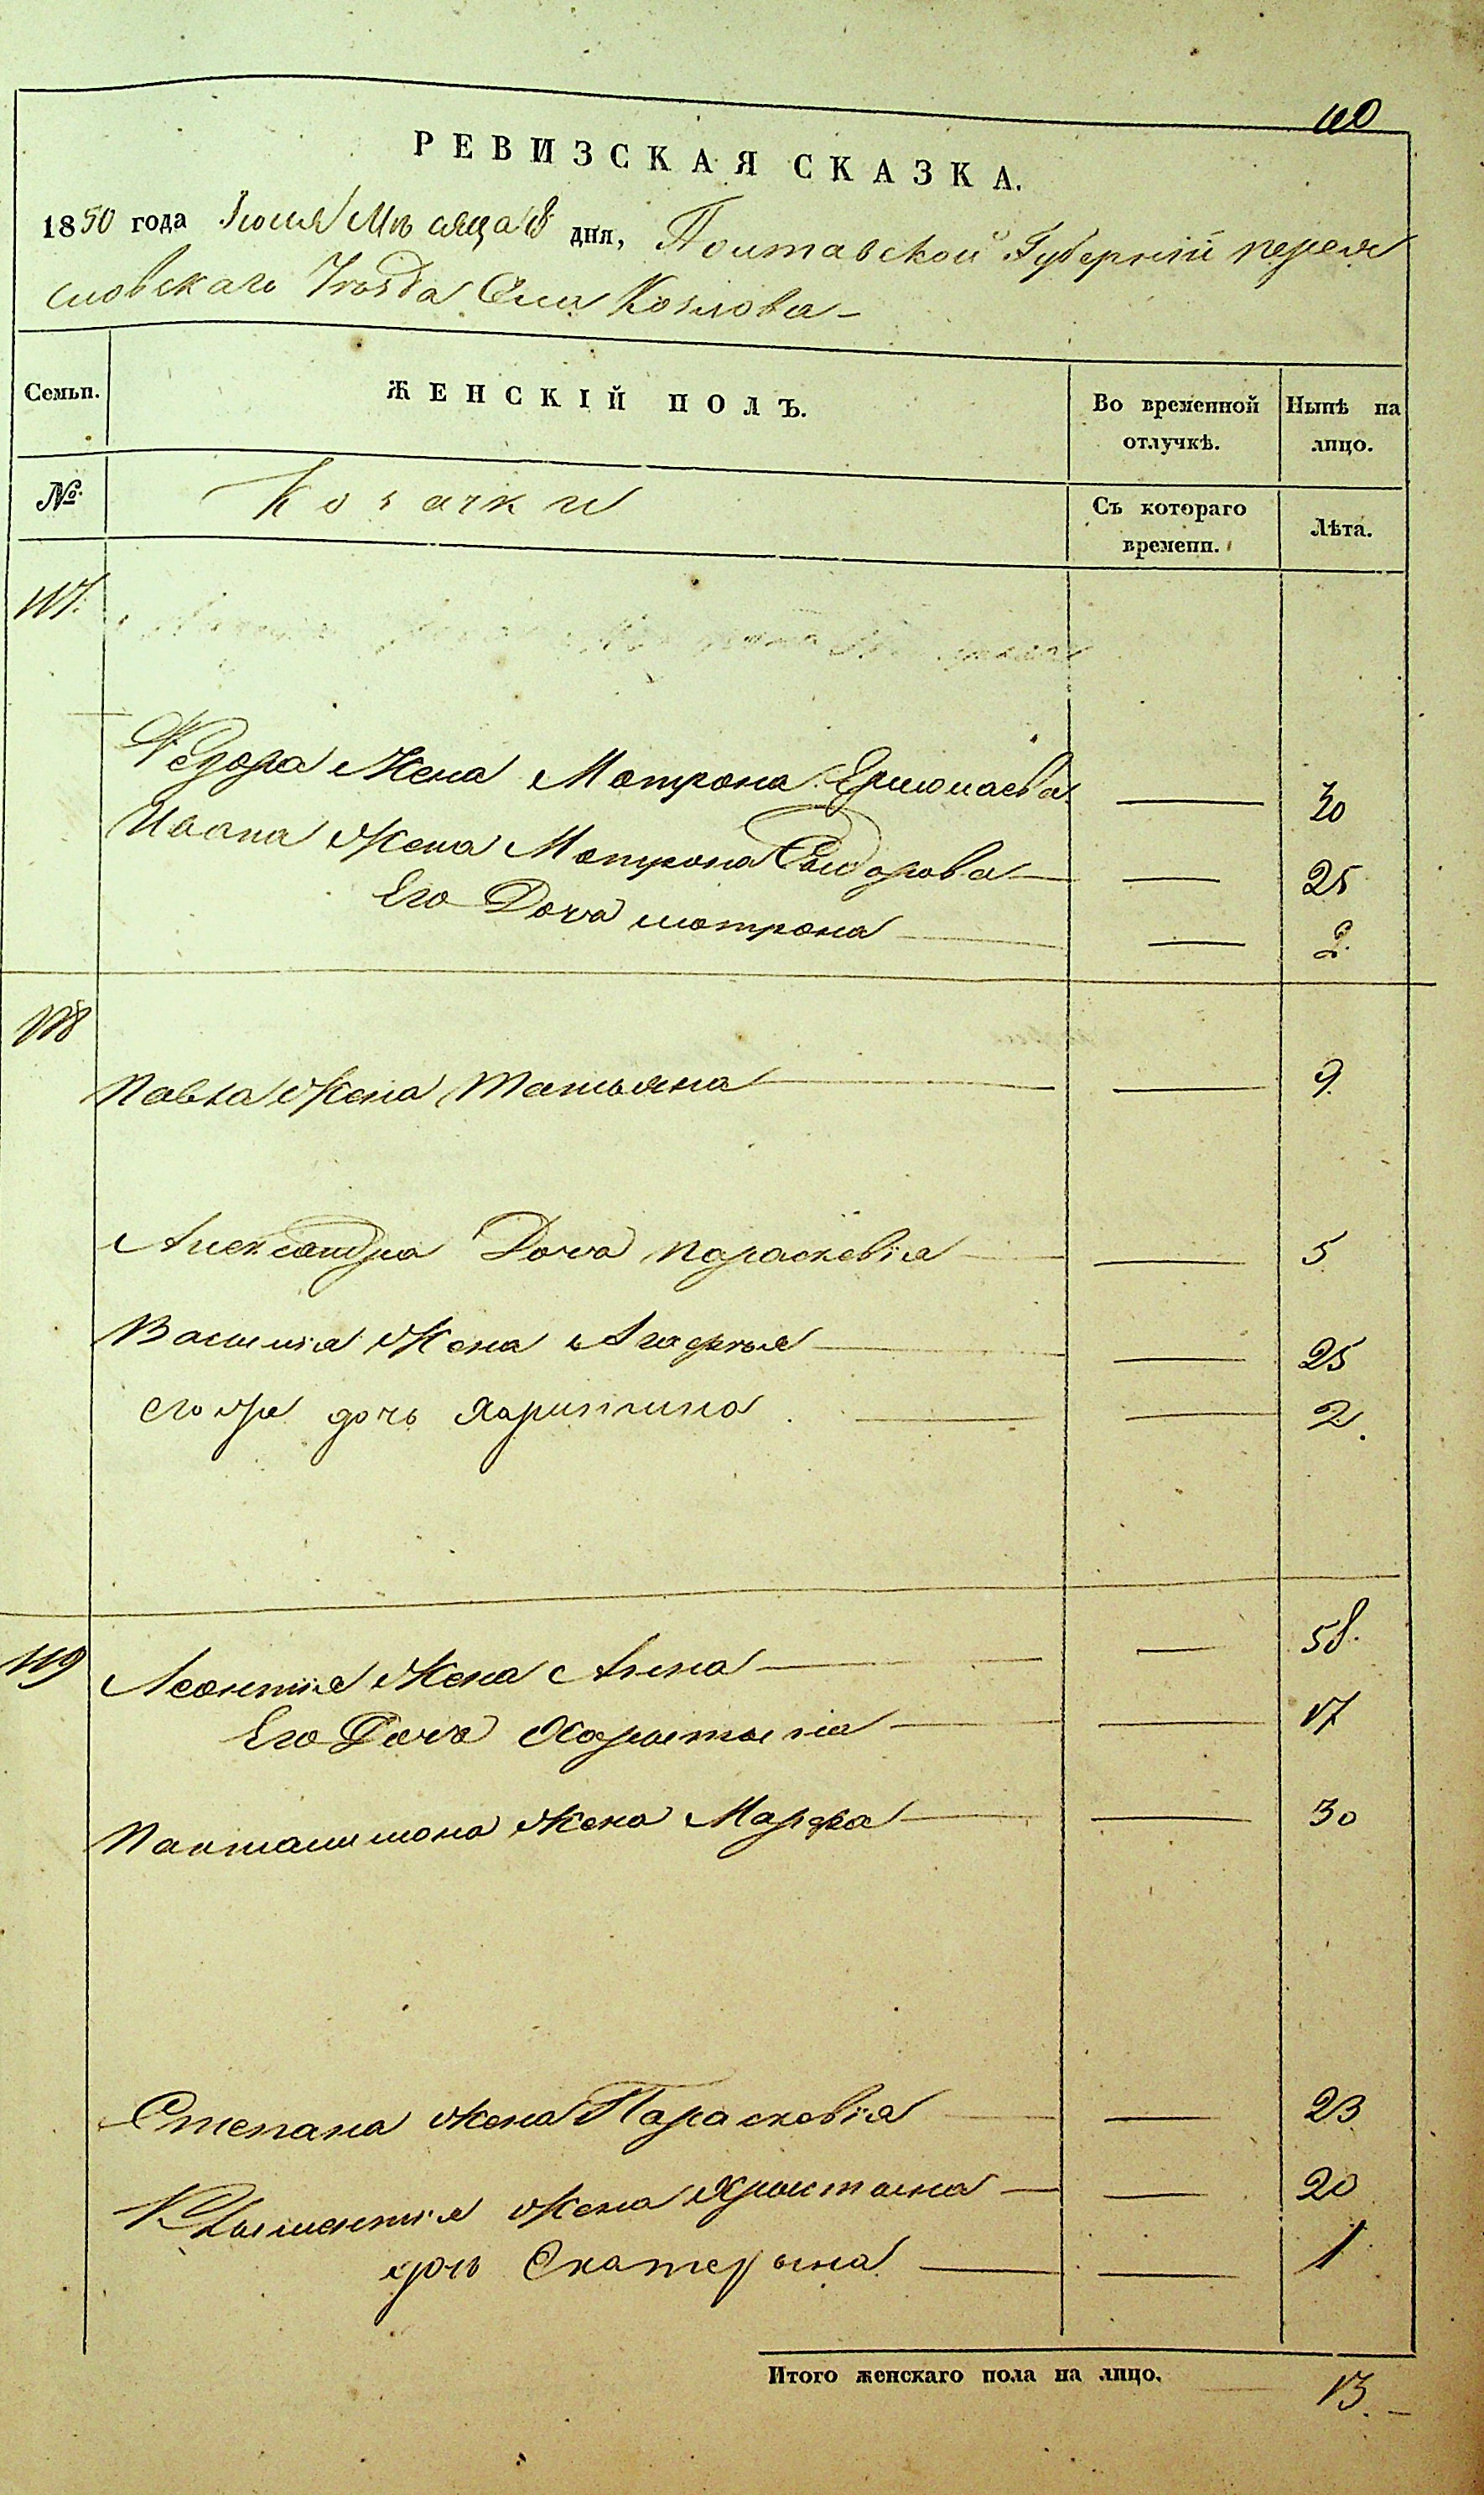 110
РЕВИЗСКАЯ СКАЗКА.
1850 года Июля Мѣсяца 18 дня, Полтавской Губерніи перея
словскаго Уѣзда Села Козлова
Семьи. ЖЕНСКІЙ ПОЛЪ. Во временной отлучкѣ. Нынѣ на лицо.
№ Козачки Съ котораго времени. Лѣта.
117.
Федора Жена Мотрона Ермолаева — 30
Ивана Жена Мотрона Сыдорова — 25
Его Доча мотрона — 2.
118
Павла Жена Татьяна — 9.
Александра Доча параскевія — 5
Василія Жена Агафья — 25
его же дочь Харитина — 2.
119 Леонтія Жена Анна — 58.
Его Доча Харытына — 17
Панталимона Жена Марфа — 30
Степана жена Параскевія — 23
Клыментія жена Хрыстына — 20
дочь Екатерына — 1
Итого женскаго пола на лицо. 13.